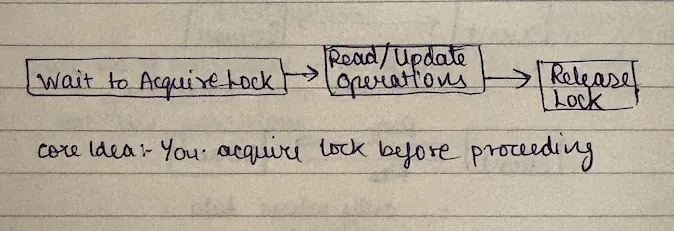 Wait to Acquire Lock
Read/Update
Operations
Release
Lock
Core Idea:- You acquire lock before proceeding